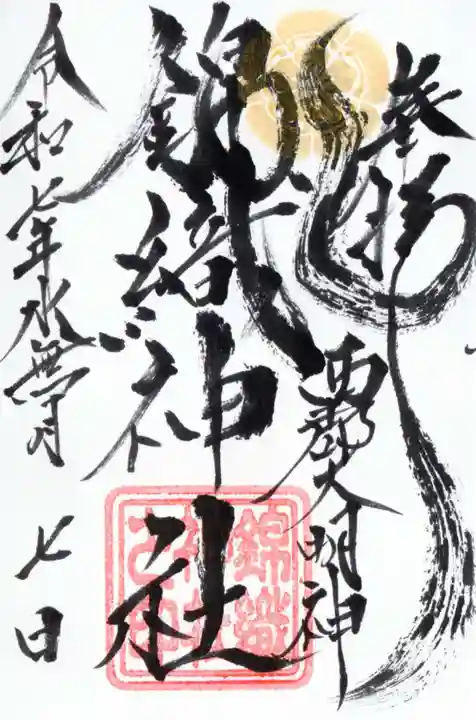 奉拝
西郡大明神
錦織神社
錦織神社之印
令和七年水無月
七日